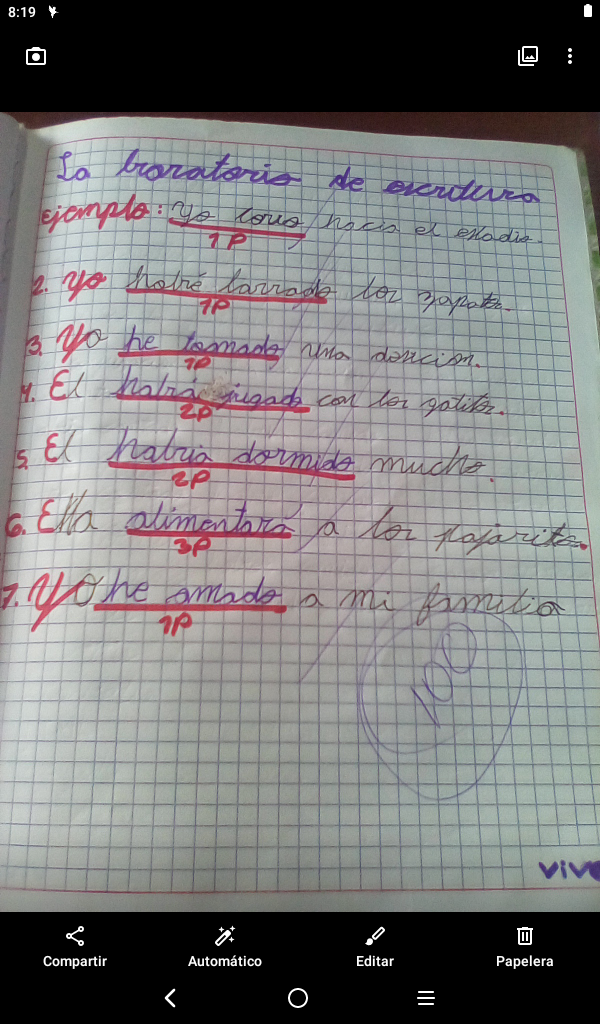 8:19
La boratorio de escritura
Ejemplo: Yo corro hacia el estadio.
1P
2. Yo habré barrado los zapatos.
1P
3. Yo he tomado una dorcion.
1P
4. El habrá jugado con los gatitos.
2P
5. El habria dormido mucho.
2P
6. Ella alimentará a los pajaritos.
3P
7. Yo he amado a mi familia
1P
100
vive
Compartir
Automático
Editar
Papelera